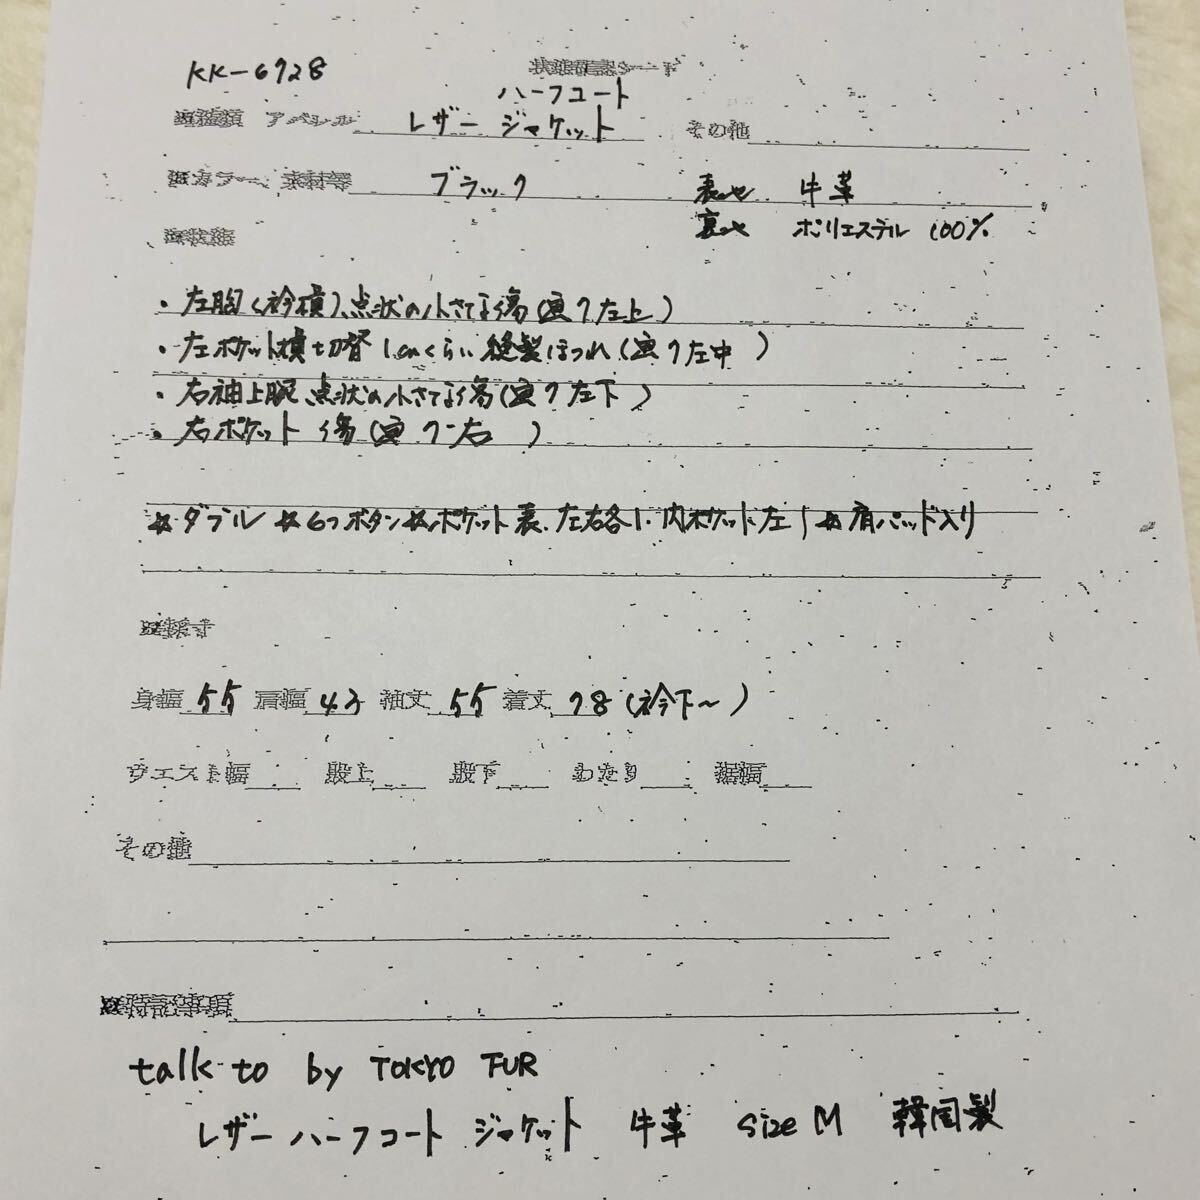 KK-6928 状態確認シート
ハーフコート
※種類 アパレル レザー ジャケット その他
※カラー、素材等 ブラック 表地 牛革
裏地 ポリエステル 100%
※状態
・左胸(衿横)、点状の小さな傷(画7左上)
・左ポケット横切替 1cmくらい縫製ほつれ(画7左中)
・右袖上腕 点状の小さな傷(画7左下)
・右ポケット 傷(画7-右)
☆ダブル ☆6つボタン ☆ポケット 表、左右各1・内ポケット左1 ☆肩パッド入り
※採寸
身幅 55 肩幅 43 袖丈 55 着丈 78 (衿下〜)
ウエスト幅 股上 股下 わたり 裾幅
その他
※特記事項
talk to by TOKYO FUR
レザー ハーフコート ジャケット 牛革 size M 韓国製